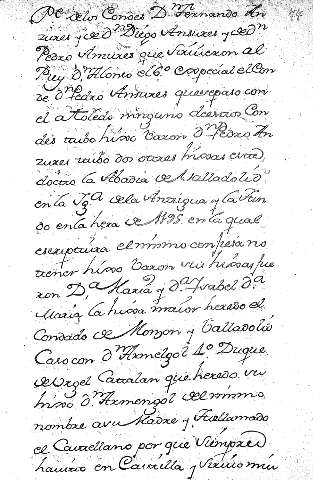 Pe. de los Condes Dn. Fernando An
zures y de dn. Diego Ansures y de dn
Pedro Ansures que sirvieron al
Rey dn. Alonso el 6º especial el Con
de dn. Pedro Ansures que paso con
el a Toledo ninguno destos Con
des tubo hixo baron dn. Pedro An
zures tubo dos otras hixas
doto la Abadia de Valladolid
en la Yga. de la Antigua y la fun
do en la hera de en la qual
escriptura el mismo confiesa no
tener hixo baron sus hixas fue
ron Da. Maria y da. Ysabel da.
Maria la hixa maior heredo el
Condado de Monzon y Valladolid
Caso con dn. Armengol 4º Duque
de Urgel Cattalan que heredo su
hixo dn. Armengol del mismo
nombre a su Madre y fue llamado
el Castellano por que siempre
havito en Castilla y sirvio mui